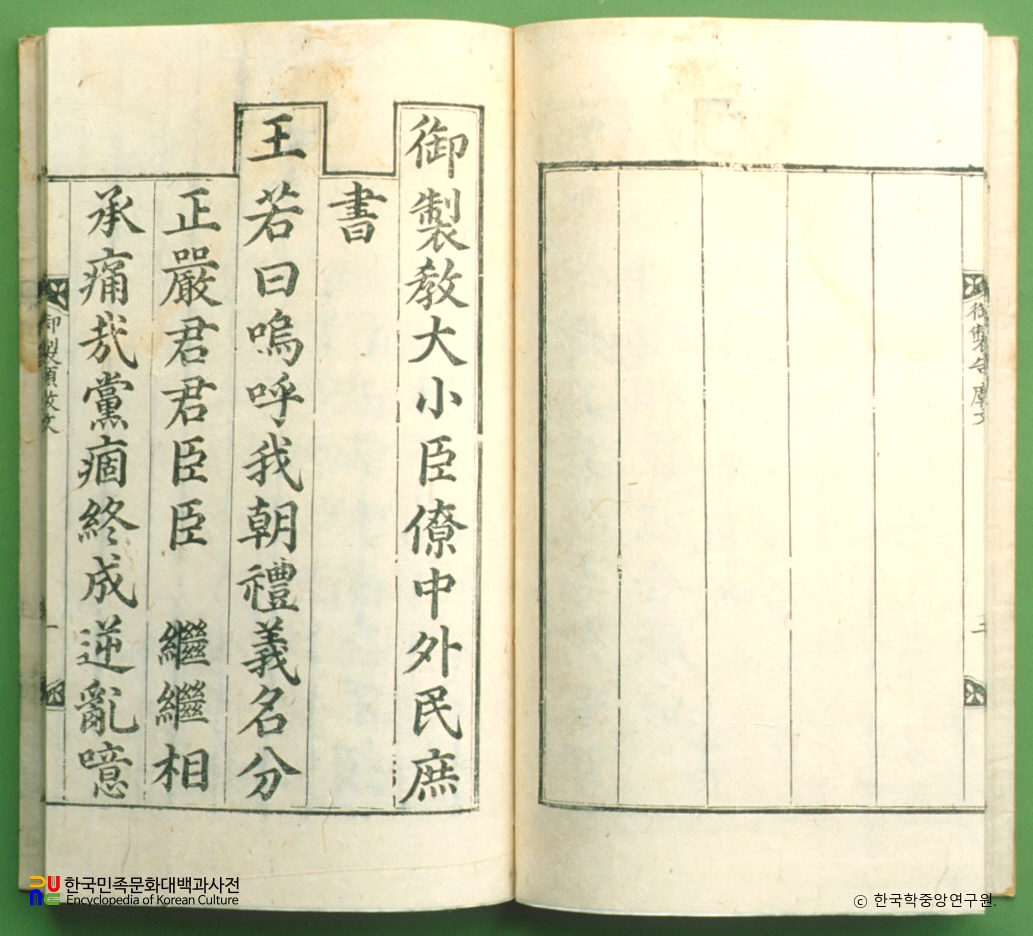 御製告
二
御製教大小臣僚中外民庶
書
王若曰嗚呼我朝禮義名分
正嚴君君臣臣 繼繼相
承痛哉黨痼終成逆亂噫
御製頒教文
一
한국민족문화대백과사전
Encyclopedia of Korean Culture
ⓒ 한국학중앙연구원.